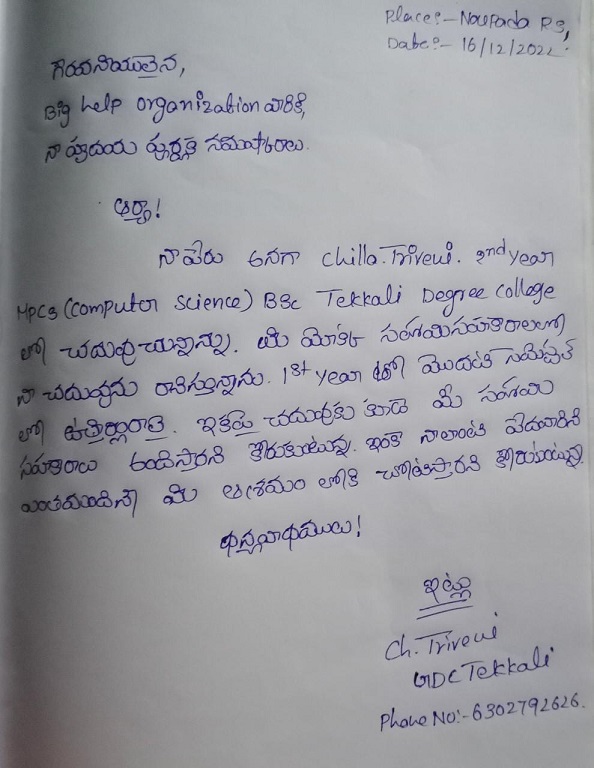 Place:- Naupada RS,
Date:- 16/12/2022.
గౌరవనీయులైన,
Big help organization వారికి,
నా హృదయ పూర్వక నమస్కారాలు.
ఆర్యా!
నా పేరు అనగా Chilla. Triveni. 2nd year
MPCs (Computer Science) BSc Tekkali Degree College
లో చదువుచున్నాను. మీ యొక్క సహాయసహకారాలలో
నా చదువును రానిస్తూన్నాను. 1st year లో మొదటి సెమిష్టర్
లో ఉత్తీర్ణురాలై. ఇకపై చదువుకు కూడా మీ సహాయ
సహకారాలు అందిస్తారని కోరుకుంటున్న. ఇంకా నాలాంటి పేదవారిని
ఎంతమందినో మీ ఆశ్రమం లోకి చోటిస్తారని కోరుకుంటున్న.
ధన్యవాధములు!
ఇట్లు
Ch. Triveni
GDC Tekkali
Phone No:- 6302792626.